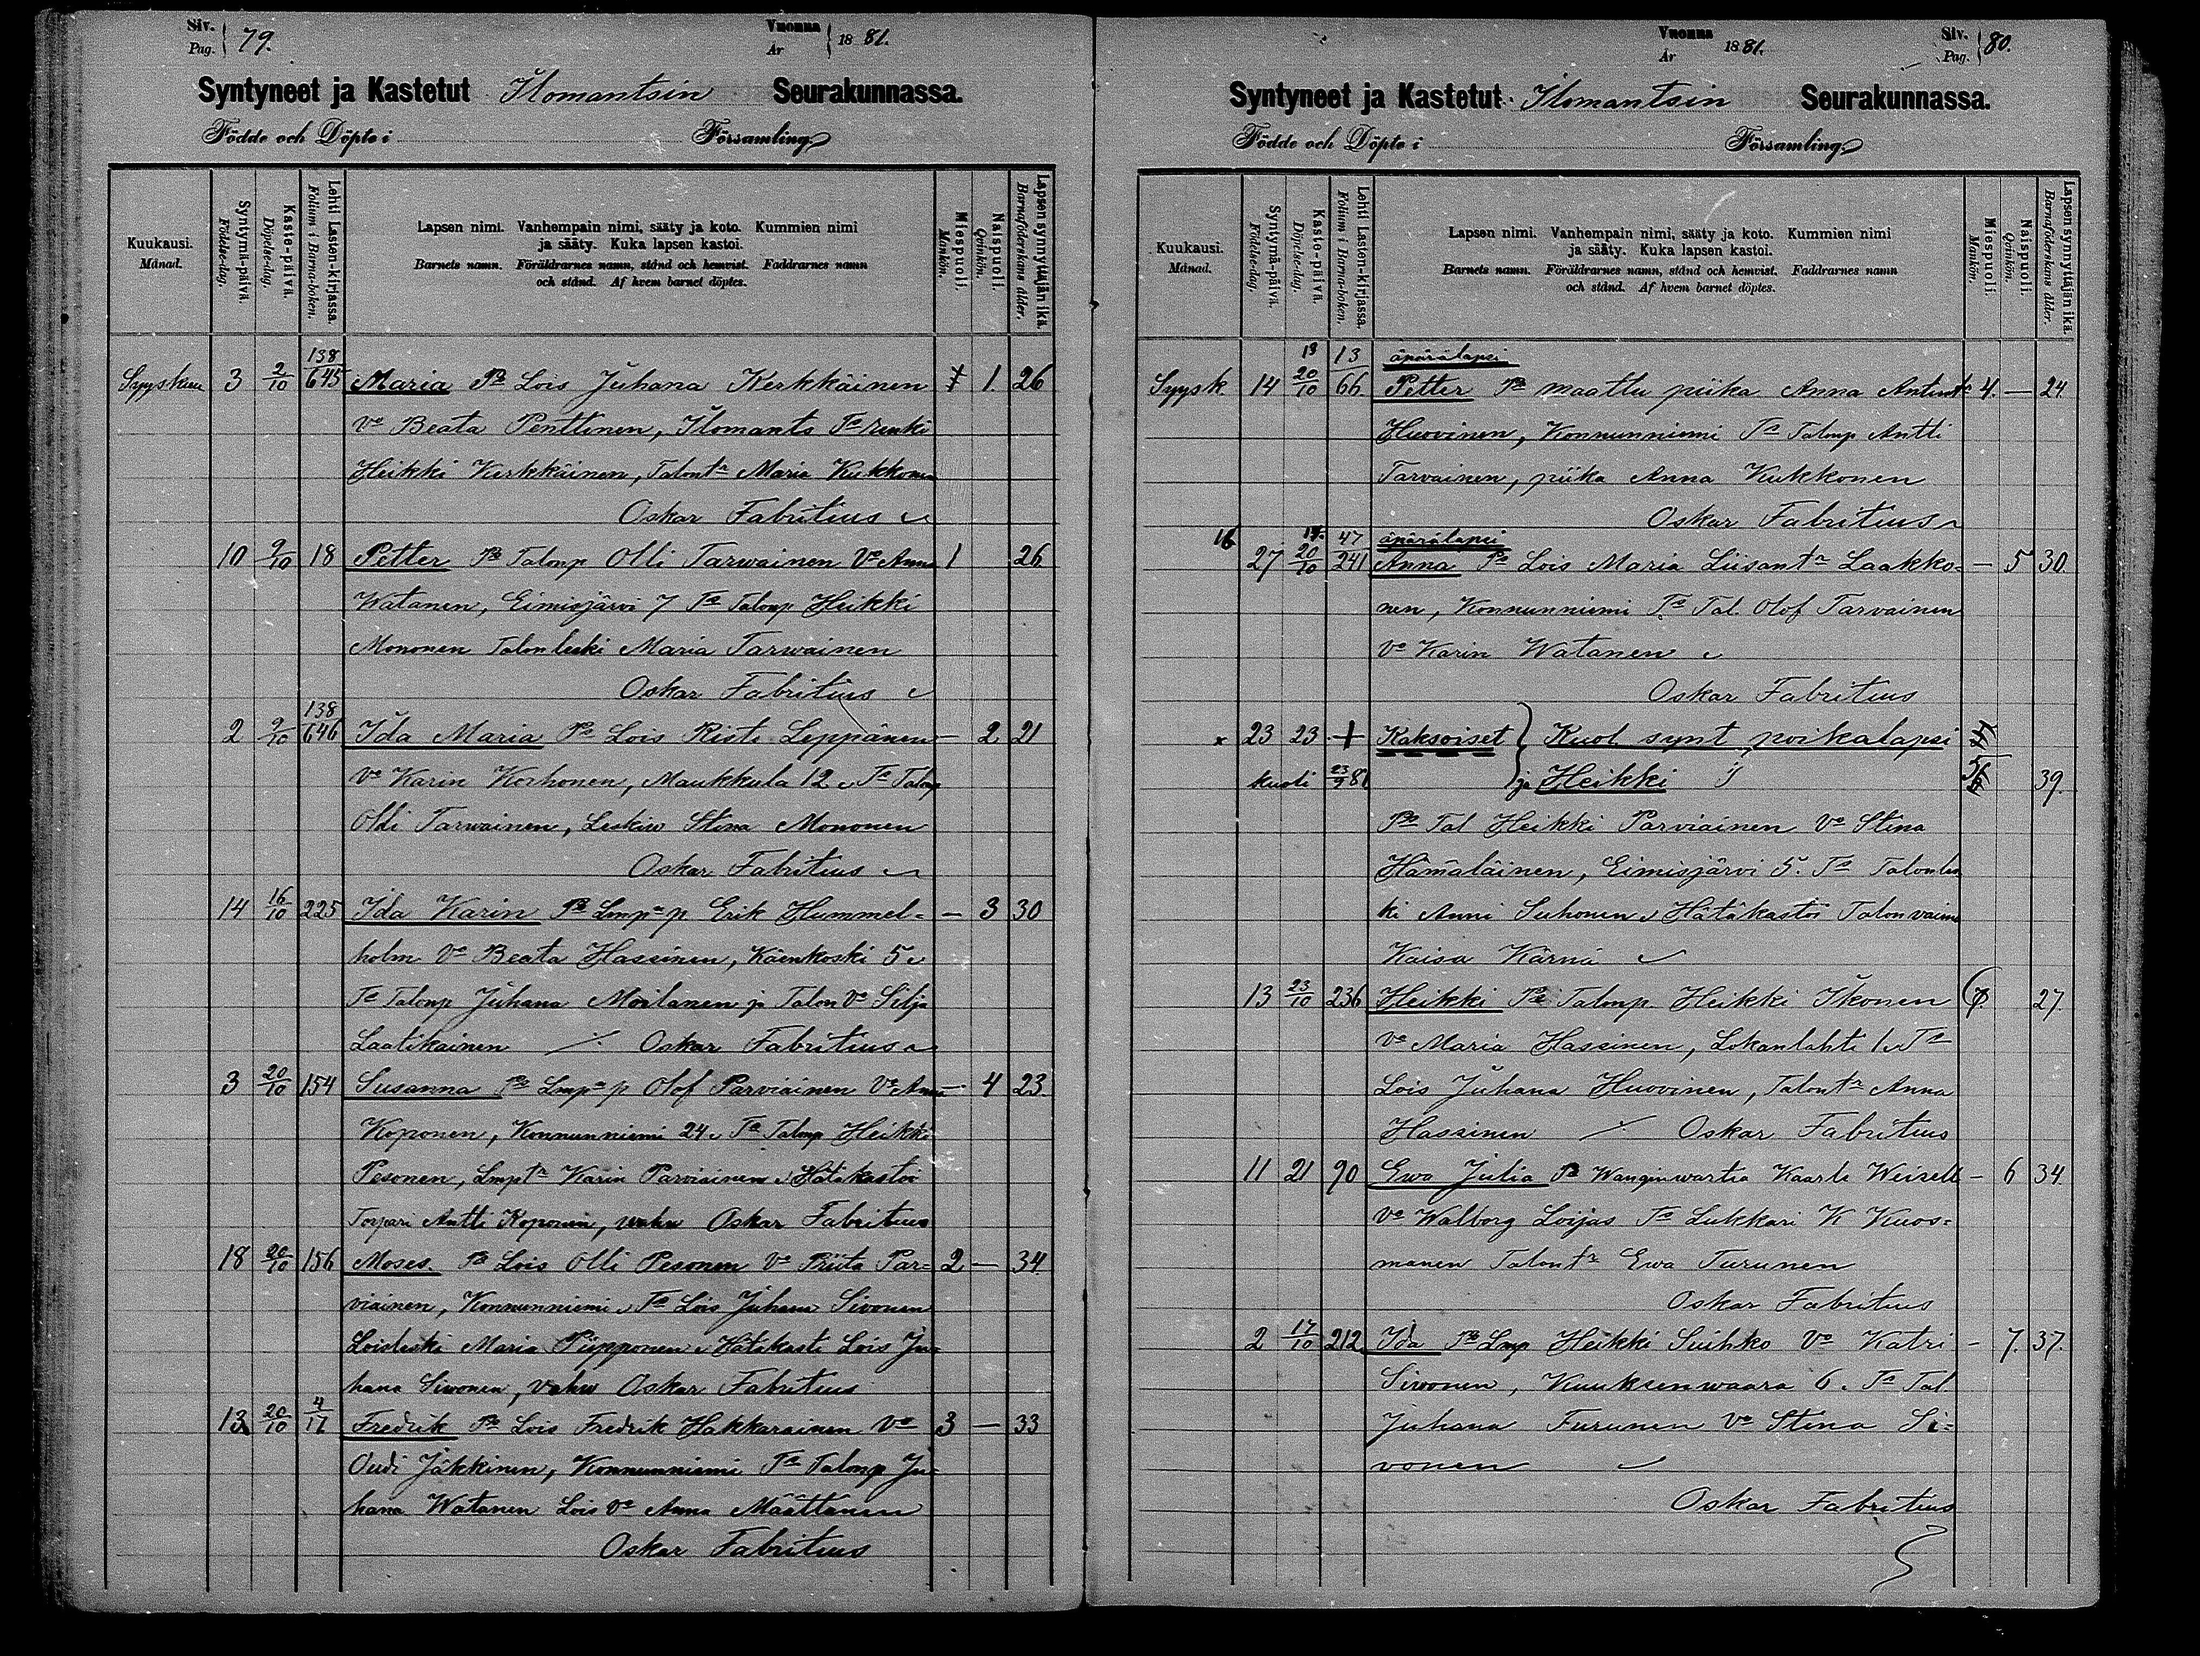 Siv. Pag. 79.
Vuonna År 1881.
Syntyneet ja Kastetut Ilomantsin Seurakunnassa.
Födde och Döpte i Församling.
Kuukausi. Månad.
Syntymä-päivä. Födelse-dag.
Kaste-päivä. Döpelse-dag.
Lehti Lasten-kirjassa. Folium i Barna-boken.
Lapsen nimi. Vanhempain nimi, sääty ja koto. Kummien nimi
ja sääty. Kuka lapsen kastoi.
Barnets namn. Föräldrarnes namn, stånd och hemvist. Faddrarnes namn
och stånd. Af hvem barnet döptes.
Miespuoli. Mankön.
Naispuoli. Qvinkön.
Lapsen synnyttäjän ikä. Barnaföderskans ålder.
138
Syyskuu 3 2/10 645 Maria Va Lois Juhana Kerkkäinen 1. 26
Vo Beata Penttinen, Ilomants Ta renki
Heikki Kerkkäinen, Talontr Maria Kukkonen
Oskar Fabritius
10 9/10 18 Petter Va Talonp Olli Tarwainen Vo Anna 1 26
Watanen, Eimisjärvi 7 Ta Talonp Heikki
Mononen Talonleski Maria Tarwainen
Oskar Fabritius
138
2 9/10 646 Ida Maria Va Lois Risti Leppänen — 2 21
Vo Karin Korhonen, Maukkula 12 Ta Talonp
Olli Tarwainen, Leskiw Stina Mononen
Oskar Fabritius
14 16/10 225 Ida Karin Va Lmp p Erik Hummel= — 3 30
holm Vo Beata Hassinen, Käenkoski 5
Ta Talonp Juhana Moilanen ja Talon Vo Silja
Laatikainen ⁒ Oskar Fabritius
3 20/10 154 Susanna Va Lmp p Olof Parviainen Vo Anna — 4 23.
Koponen, Konnunniemi 24 Ta Talonp Heikki
Pesonen, Lmptr Karin Parviainen Hätäkastoi
Torpari Antti Koponen, vahw Oskar Fabritius
18 20/10 156 Moses. Va Lois Olli Pesonen Vo Priita Par= 2 — 34.
viainen, Konnunniemi Ta Lois Juhana Sivonen
Loisleski Maria Piipponen Hätäkasti Lois Ju=
hana Siwonen, vahw Oskar Fabritius
13 20/10 4/17 Fredrik Va Lois Fredrik Hakkarainen Vo 3 — 33
Oudi Jäkkinen, Konnunniemi Ta Talonp Ju=
hana Watanen Lois Vo Anna Määttänen
Oskar Fabritius
Vuonna År 1881.
Siv. Pag. 80.
Syntyneet ja Kastetut Ilomantsin Seurakunnassa.
Födde och Döpte i Församling.
Kuukausi. Månad.
Syntymä-päivä. Födelse-dag.
Kaste-päivä. Döpelse-dag.
Lehti Lasten-kirjassa. Folium i Barna-boken.
Lapsen nimi. Vanhempain nimi, sääty ja koto. Kummien nimi
ja sääty. Kuka lapsen kastoi.
Barnets namn. Föräldrarnes namn, stånd och hemvist. Faddrarnes namn
och stånd. Af hvem barnet döptes.
Miespuoli. Mankön.
Naispuoli. Qvinkön.
Lapsen synnyttäjän ikä. Barnaföderskans ålder.
13 13 äpärälapsi
Syysk. 14 20/10 66. Petter Va maattu piika Anna Antintr 4. — 24.
Huovinen, Konnunniemi Ta Talonp Antti
Tarvainen, piika Anna Kukkonen
Oskar Fabritius
16 17. 47 äpärälapsi
27 20/10 241 Anna Va Lois Maria Liisantr Laakko= — 5 30.
nen, Konnunniemi Ta Tal. Olof Tarvainen
Vo Karin Watanen
Oskar Fabritius
x 23 23 + Kaksoiset } Kuol. synt poikalapsi
kuoli 23/9 81 ja Heikki 39.
Va Tal Heikki Parviainen Vo Stina
Hämäläinen, Eimisjärvi 5. Ta Talonles
ki Anni Suhonen Hätäkastoi Talonvaimo
Kaisa Kärnä
13 23/10 236 Heikki Va Talonp. Heikki Ikonen 27.
Vo Maria Hassinen, Lokanlahti 1 Ta
Lois Juhana Huovinen, Talontr Anna
Hassinen ⁒ Oskar Fabritius
11 21 90 Ewa Julia Va Wanginwartia Kaarle Weisell — 6 34.
Vo Walborg Loijas Ta Lukkari K Kuos=
manen Talontr Ewa Turunen
Oskar Fabritius
2 17/10 212 Ida Va Lmp Heikki Suihko Vo Katri — 7. 37.
Siwonen, Kuuksenwaara 6. Ta Tal.
Juhana Turunen Vo Stina Si=
vonen
Oskar Fabritius